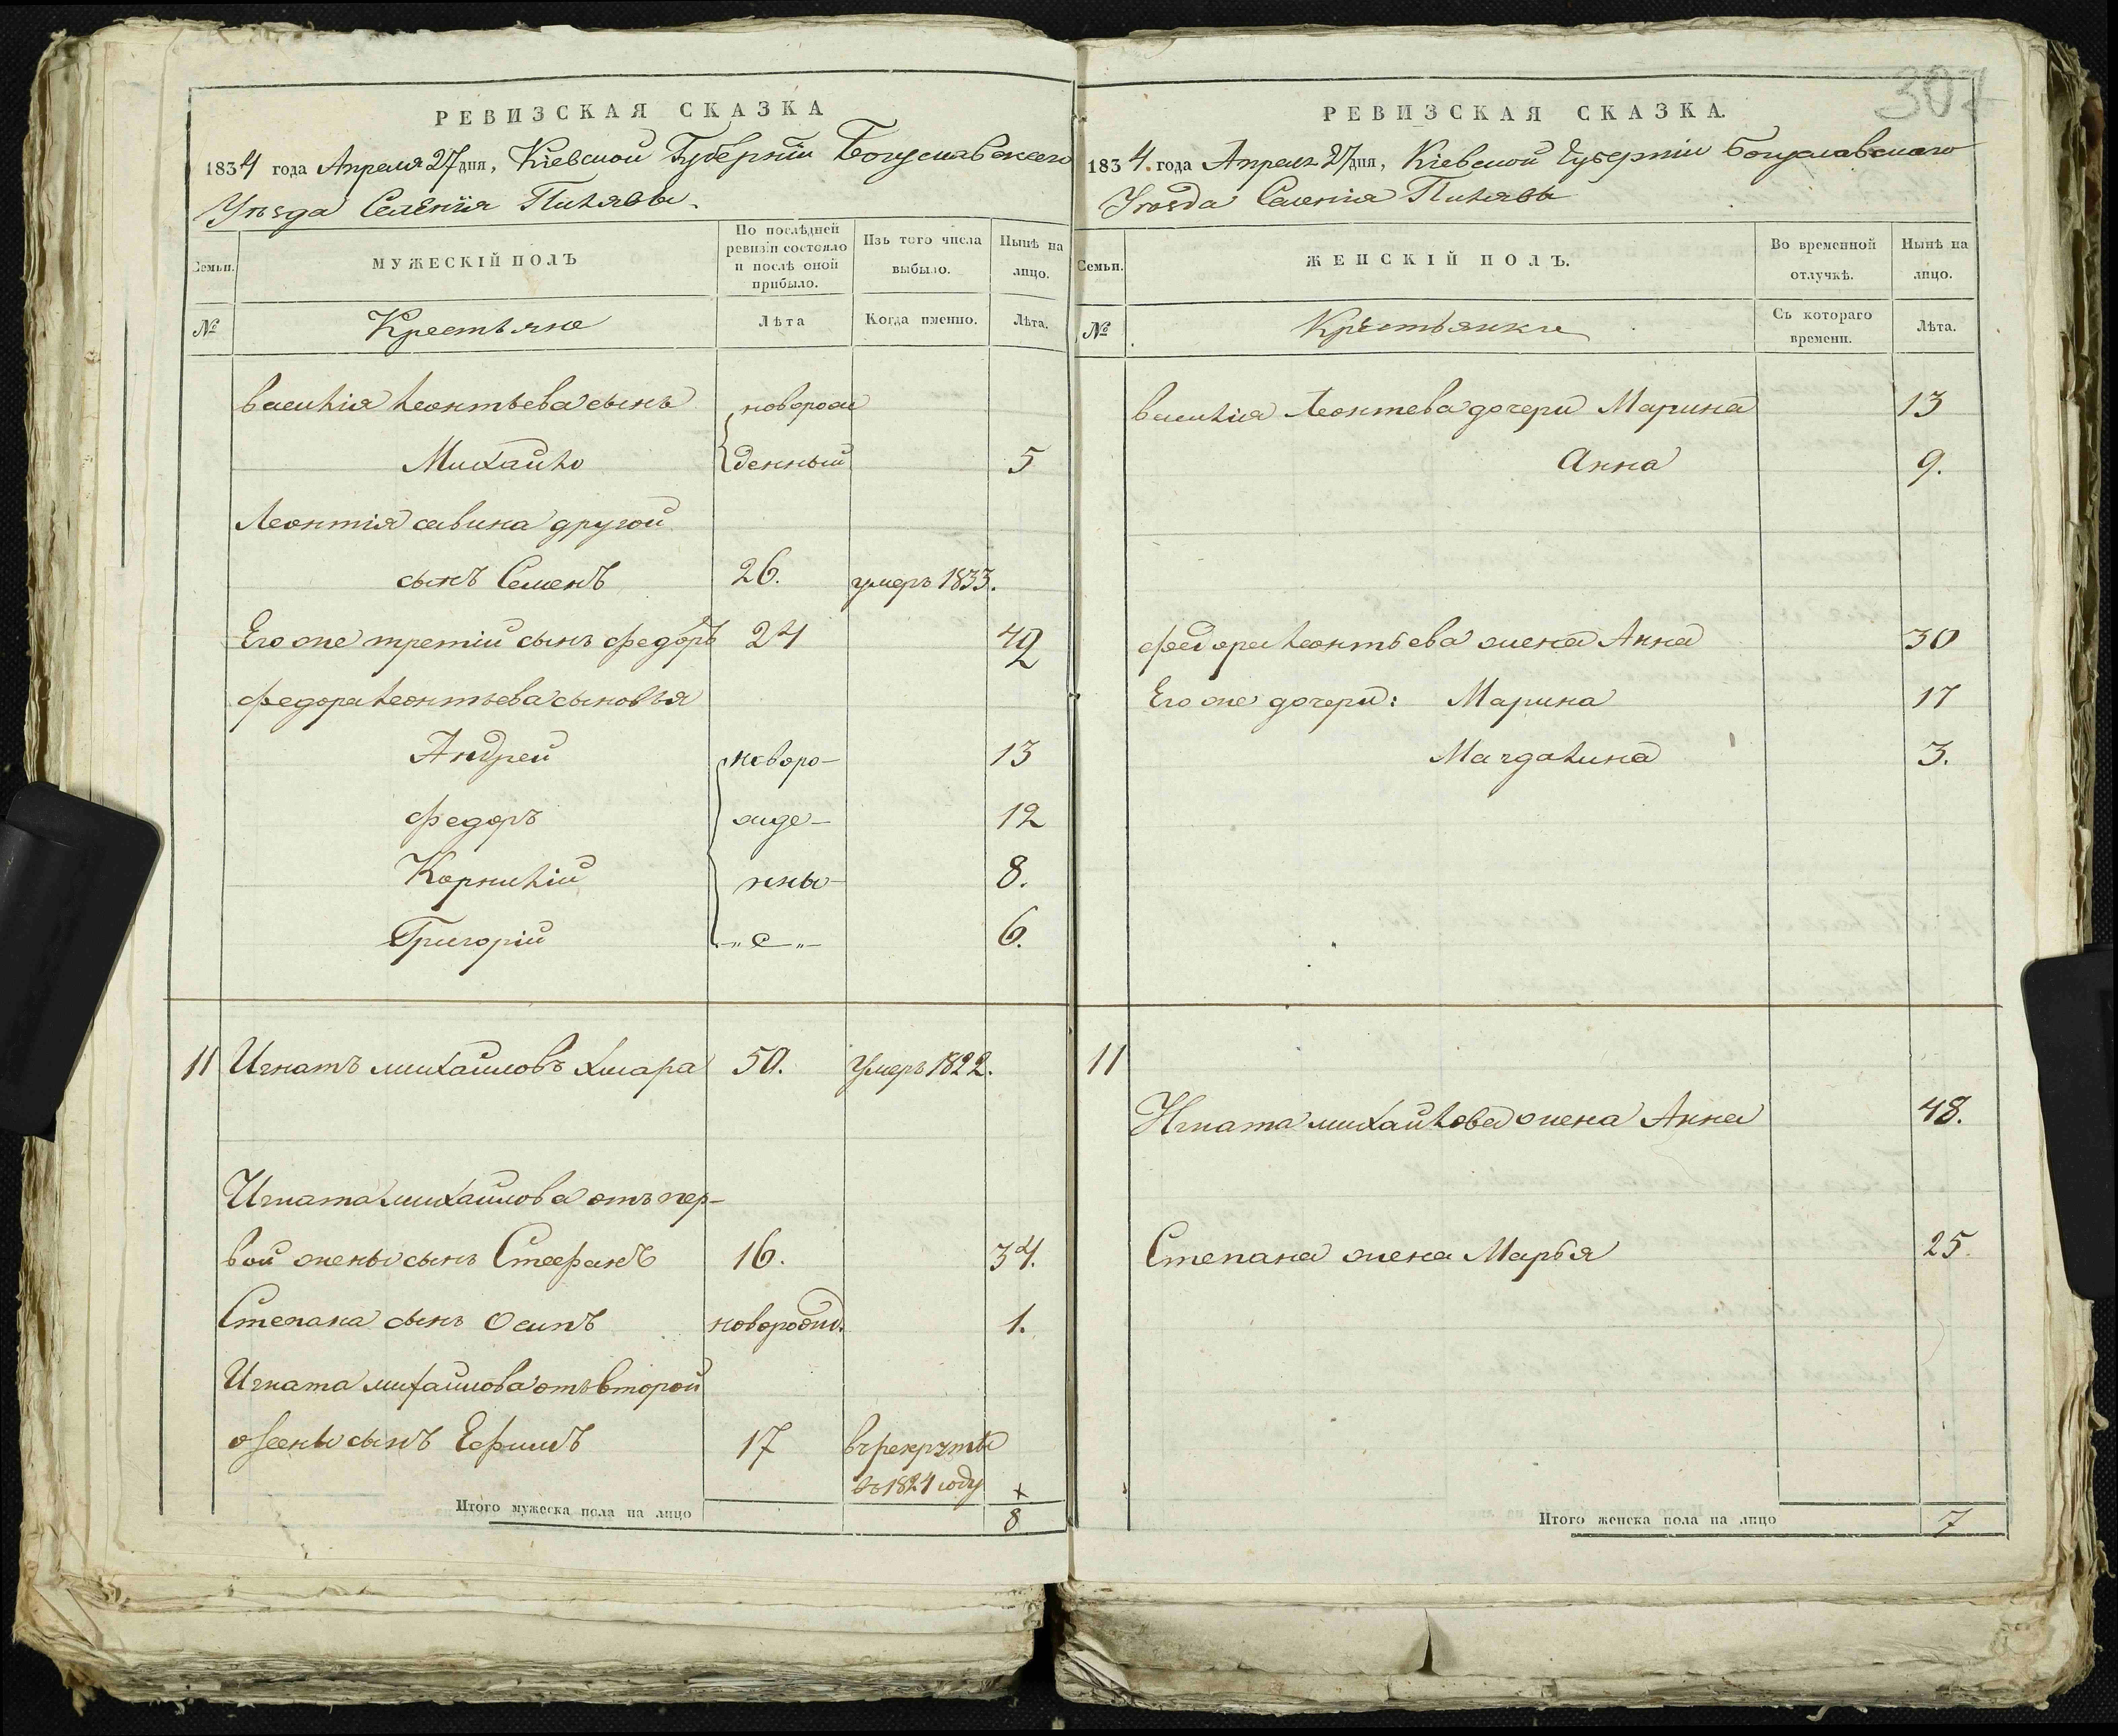 307
РЕВИЗСКАЯ СКАЗКА
1834 года Апреля 27 дня, Кіевской Губерніи Богуславского
Уѣзда Селенія Пилявы.
Семьи.
МУЖЕСКІЙ ПОЛЪ
По послѣдней ревизіи состояло и послѣ оной прибыло.
Изъ того числа выбыло.
Нынѣ на лицо.
№
Крестьяне
Лѣта
Когда именно.
Лѣта.
Василія Леонтьева сынъ новорож
Михайло денный 5
Леонтія савина другой
сынъ Семенъ 26. умеръ 1833.
Его же третій сынъ Федоръ 24 42
Федора Леонтьева сыновья
Андрей новоро- 13
Федоръ жде- 12
Корнилій нны- 8.
Григорій -„ е „- 6.
11 Игнатъ михайловъ Хмара 50. Умеръ 1822.
Игната михайлова отъ пер-
вой жены сынъ Стефанъ 16. 34.
Степана сынъ Осипъ новорожд. 1.
Игната михайлова отъ второй
жены сынъ Ефимъ 17 въ рекруты
въ 1824 году x
Итого мужеска пола на лицо 8
РЕВИЗСКАЯ СКАЗКА.
1834. года Апреля 27 дня, Кіевской Губерніи Богуславского
Уѣзда Селенія Пилявы
Семьи.
ЖЕНСКІЙ ПОЛЪ.
Во временной отлучкѣ.
Нынѣ на лицо.
№
Крестьянки
Съ котораго времени.
Лѣта.
Василія Леонтева дочери Марина 13
Анна 9.
Федора Леонтьева жена Анна 30
Его же дочери: Марина 17
Магдалина 3.
11
Игната михайлова жена Анна 48.
Степана жена Марья 25.
Итого женска пола на лицо 7